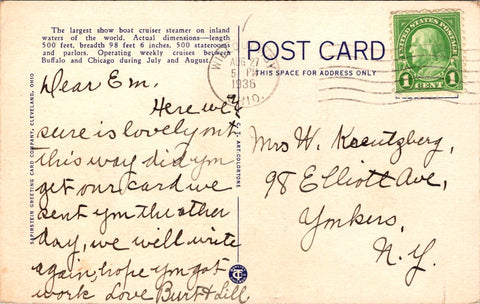 The largest show boat cruiser steamer on inland
waters of the world. Actual dimensions—length
500 feet, breadth 98 feet 6 inches, 500 staterooms
and parlors. Operating weekly cruises between
Buffalo and Chicago during July and August.
Dear Em.
Here we
sure is lovely out
this way did you
get our card we
sent you the other
day, we will write
again, hope you got
work Love Burt & Lill
SAPIRSTEIN GREETING CARD COMPANY, CLEVELAND, OHIO
C. T. ART-COLORTONE
POST CARD
THIS SPACE FOR ADDRESS ONLY
AUG 27
5 PM
1936
OHIO
UNITED STATES POSTAGE
1 1
CENT
Mrs W. Kreutzberg,
98 Elliott Ave,
Yonkers,
N.Y.